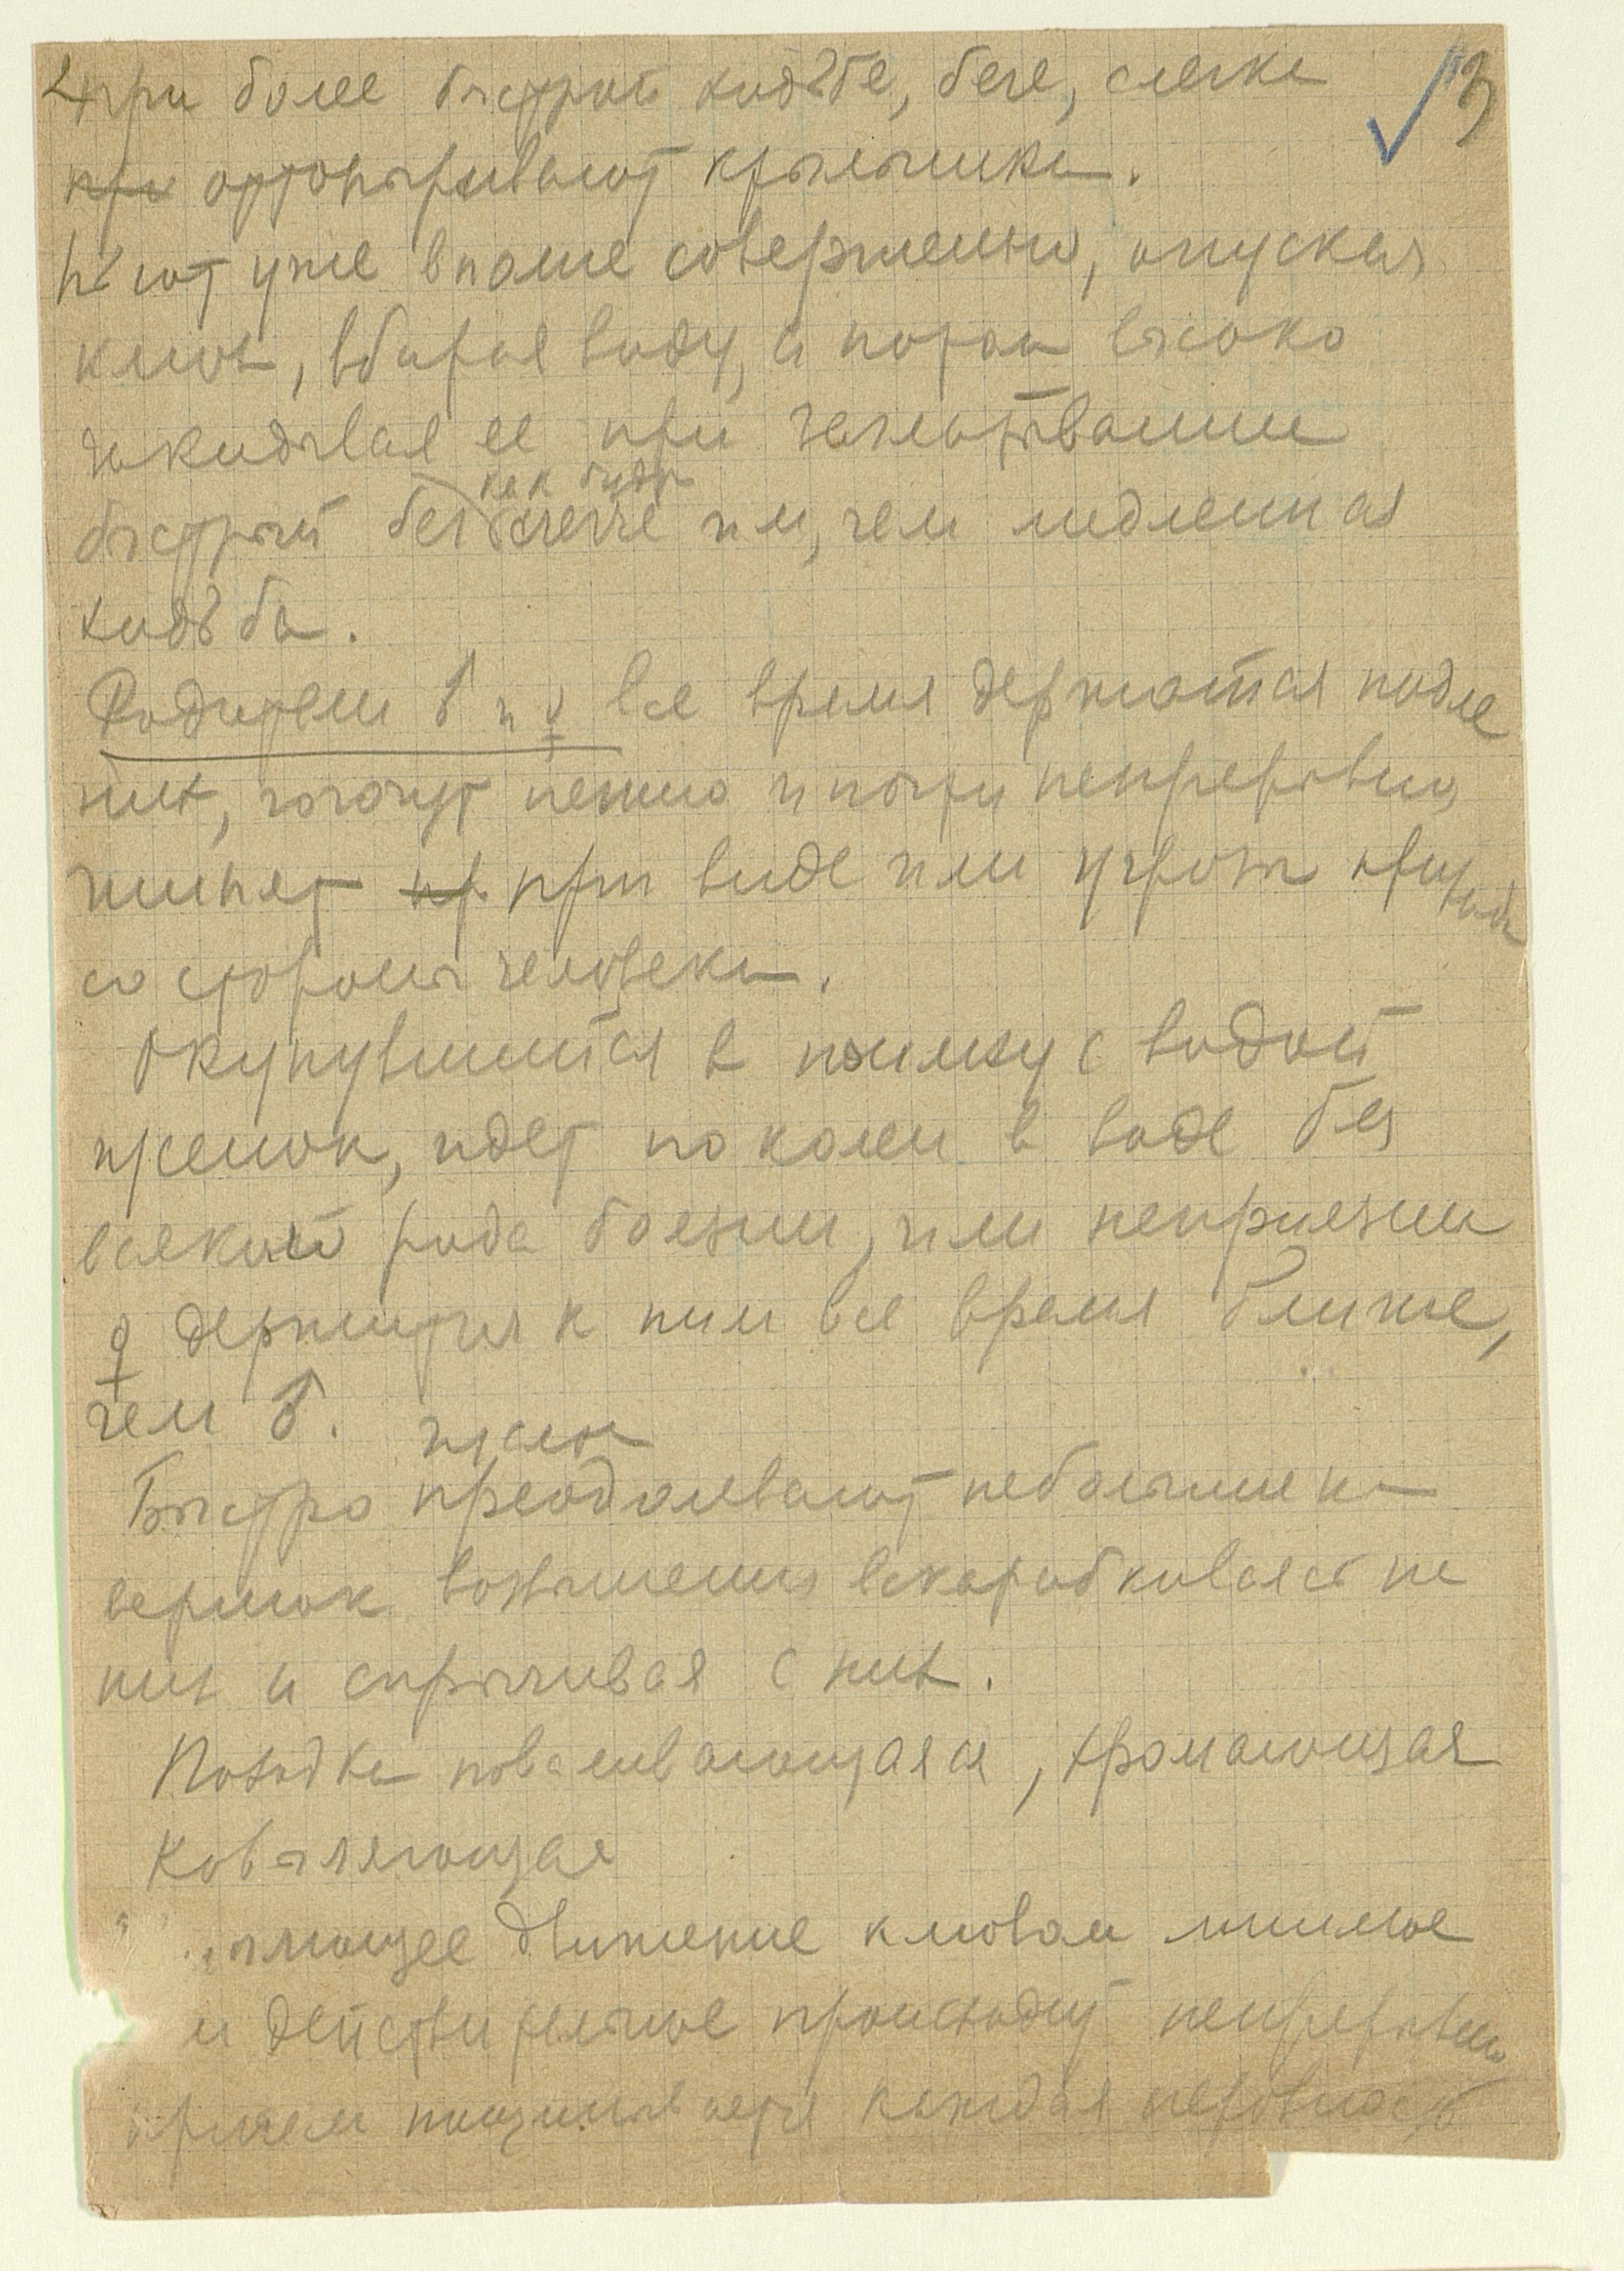 при более быстрой ходьбе, беге, слегка
при оттопыривают крылышки.
Пьют уже вполне совершенно, опуская
клюв, вбирая воду, и потом высоко
закидывая ее при заглатывании
как будто
быстрый бег легче им, чем медленная
ходьба.
Родители ♂ и ♀ все время держатся подле
них, гогочут нежно и почти непрерывно,
шипят пр при виде или угрозе
со стороны человека.
Окунувшийся в с водой
гусенок, идет по колени в воде без
всякой рода боязни, или неприязни
♀ держится к ним все время ближе,
чем ♂.
гусята
Быстро преодолевают небольшие на
вершок возвышения вскарабкиваясь на
них и спрыгивая с них.
Походка поваливающаяся, хромающая
ковыляющая
движение клювом мнимое
и действительное происходит непрерывно
причем пощипывается каждая неровность